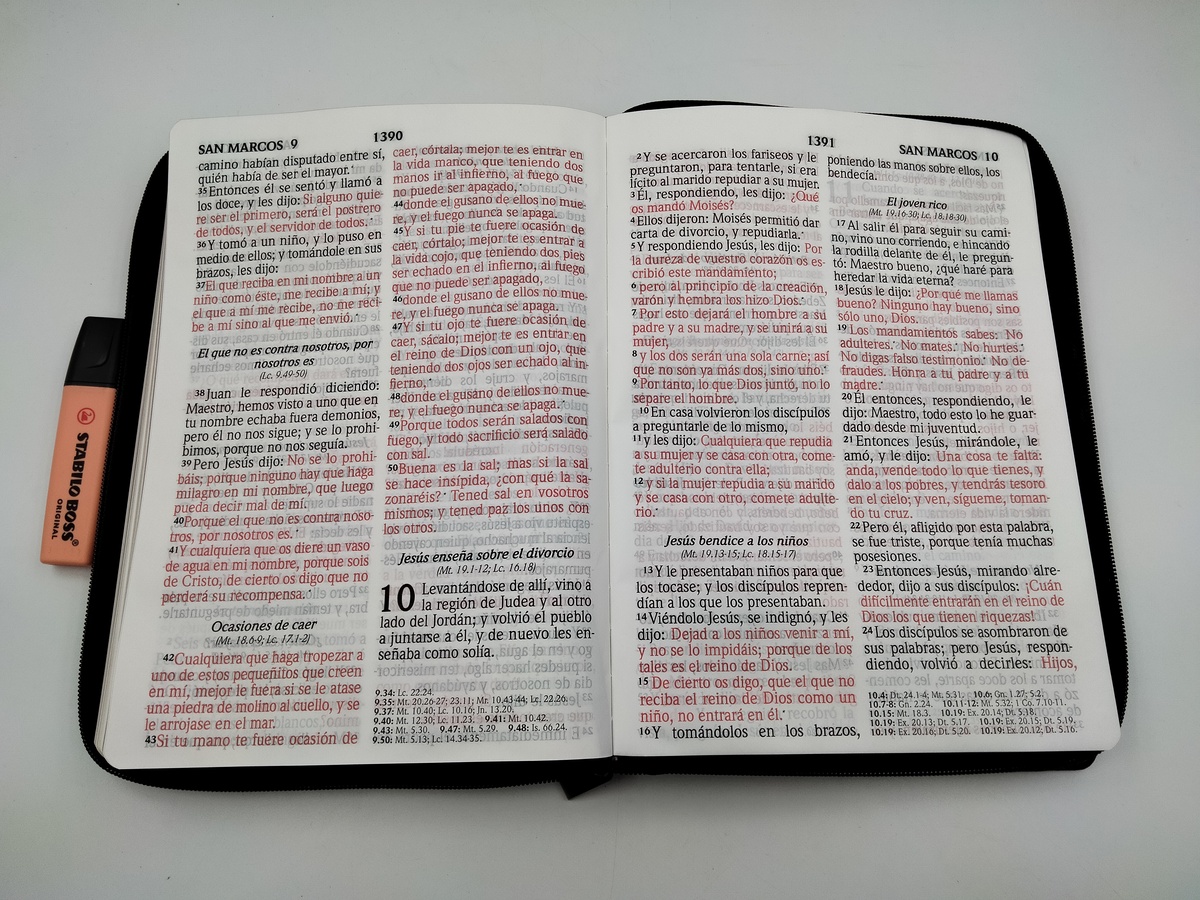 SAN MARCOS 9
1390
camino habían disputado entre sí,
quién había de ser el mayor.*
35Entonces él se sentó y llamó a
los doce, y les dijo: Si alguno quie-
re ser el primero, será el postrero
de todos, y el servidor de todos.*
36Y tomó a un niño, y lo puso en
medio de ellos; y tomándole en sus
brazos, les dijo:
37El que reciba en mi nombre a un
niño como éste, me recibe a mí; y
el que a mí me recibe, no me reci-
be a mí sino al que me envió.*
El que no es contra nosotros, por
nosotros es
(Lc. 9.49-50)
38Juan le respondió diciendo:
Maestro, hemos visto a uno que en
tu nombre echaba fuera demonios,
pero él no nos sigue; y se lo prohi-
bimos, porque no nos seguía.
39Pero Jesús dijo: No se lo prohi-
báis; porque ninguno hay que haga
milagro en mi nombre, que luego
pueda decir mal de mí.
40Porque el que no es contra noso-
tros, por nosotros es.*
41Y cualquiera que os diere un vaso
de agua en mi nombre, porque sois
de Cristo, de cierto os digo que no
perderá su recompensa.*
Ocasiones de caer
(Mt. 18.6-9; Lc. 17.1-2)
42Cualquiera que haga tropezar a
uno de estos pequeñitos que creen
en mí, mejor le fuera si se le atase
una piedra de molino al cuello, y se
le arrojase en el mar.
43Si tu mano te fuere ocasión de
caer, córtala; mejor te es entrar en
la vida manco, que teniendo dos
manos ir al infierno, al fuego que
no puede ser apagado,*
44donde el gusano de ellos no mue-
re, y el fuego nunca se apaga.
45Y si tu pie te fuere ocasión de
caer, córtalo; mejor te es entrar a
la vida cojo, que teniendo dos pies
ser echado en el infierno, al fuego
que no puede ser apagado,
46donde el gusano de ellos no mue-
re, y el fuego nunca se apaga.
47Y si tu ojo te fuere ocasión de
caer, sácalo; mejor te es entrar en
el reino de Dios con un ojo, que
teniendo dos ojos ser echado al in-
fierno,*
48donde el gusano de ellos no mue-
re, y el fuego nunca se apaga.*
49Porque todos serán salados con
fuego, y todo sacrificio será salado
con sal.
50Buena es la sal; mas si la sal
se hace insípida, ¿con qué la sa-
zonaréis?* Tened sal en vosotros
mismos; y tened paz los unos con
los otros.
Jesús enseña sobre el divorcio
(Mt. 19.1-12; Lc. 16.18)
10 Levantándose de allí, vino a
la región de Judea y al otro
lado del Jordán; y volvió el pueblo
a juntarse a él, y de nuevo les en-
señaba como solía.
9.34: Lc. 22.24.
9.35: Mt. 20.26-27; 23.11; Mr. 10.43-44; Lc. 22.26.
9.37: Mt. 10.40; Lc. 10.16; Jn. 13.20.
9.40: Mt. 12.30; Lc. 11.23. 9.41: Mt. 10.42.
9.43: Mt. 5.30. 9.47: Mt. 5.29. 9.48: Is. 66.24.
9.50: Mt. 5.13; Lc. 14.34-35.
1391
SAN MARCOS 10
2Y se acercaron los fariseos y le
preguntaron, para tentarle, si era
lícito al marido repudiar a su mujer.
3Él, respondiendo, les dijo: ¿Qué
os mandó Moisés?
4Ellos dijeron: Moisés permitió dar
carta de divorcio, y repudiarla.*
5Y respondiendo Jesús, les dijo: Por
la dureza de vuestro corazón os es-
cribió este mandamiento;
6pero al principio de la creación,
varón y hembra los hizo Dios.*
7Por esto dejará el hombre a su
padre y a su madre, y se unirá a su
mujer,
8y los dos serán una sola carne; así
que no son ya más dos, sino uno.*
9Por tanto, lo que Dios juntó, no lo
separe el hombre.
10En casa volvieron los discípulos
a preguntarle de lo mismo,
11y les dijo: Cualquiera que repudia
a su mujer y se casa con otra, come-
te adulterio contra ella;
12y si la mujer repudia a su marido
y se casa con otro, comete adulte-
rio.*
Jesús bendice a los niños
(Mt. 19.13-15; Lc. 18.15-17)
13Y le presentaban niños para que
los tocase; y los discípulos repren-
dían a los que los presentaban.
14Viéndolo Jesús, se indignó, y les
dijo: Dejad a los niños venir a mí,
y no se lo impidáis; porque de los
tales es el reino de Dios.
15De cierto os digo, que el que no
reciba el reino de Dios como un
niño, no entrará en él.*
16Y tomándolos en los brazos,
poniendo las manos sobre ellos, los
bendecía.
El joven rico
(Mt. 19.16-30; Lc. 18.18-30)
17Al salir él para seguir su cami-
no, vino uno corriendo, e hincando
la rodilla delante de él, le pregun-
tó: Maestro bueno, ¿qué haré para
heredar la vida eterna?
18Jesús le dijo: ¿Por qué me llamas
bueno? Ninguno hay bueno, sino
sólo uno, Dios.
19Los mandamientos sabes: No
adulteres.* No mates.* No hurtes.*
No digas falso testimonio.* No de-
fraudes. Honra a tu padre y a tu
madre.*
20Él entonces, respondiendo, le
dijo: Maestro, todo esto lo he guar-
dado desde mi juventud.
21Entonces Jesús, mirándole, le
amó, y le dijo: Una cosa te falta:
anda, vende todo lo que tienes, y
dalo a los pobres, y tendrás tesoro
en el cielo; y ven, sígueme, toman-
do tu cruz.
22Pero él, afligido por esta palabra,
se fue triste, porque tenía muchas
posesiones.
23Entonces Jesús, mirando alre-
dedor, dijo a sus discípulos: ¡Cuán
difícilmente entrarán en el reino de
Dios los que tienen riquezas!
24Los discípulos se asombraron de
sus palabras; pero Jesús, respon-
diendo, volvió a decirles: Hijos,
10.4: Dt. 24.1-4; Mt. 5.31. 10.6: Gn. 1.27; 5.2.
10.7-8: Gn. 2.24. 10.11-12: Mt. 5.32; 1 Co. 7.10-11.
10.15: Mt. 18.3. 10.19: Ex. 20.14; Dt. 5.18.
10.19: Ex. 20.13; Dt. 5.17. 10.19: Ex. 20.15; Dt. 5.19.
10.19: Ex. 20.16; Dt. 5.20. 10.19: Ex. 20.12; Dt. 5.16.
STABILO BOSS®
ORIGINAL